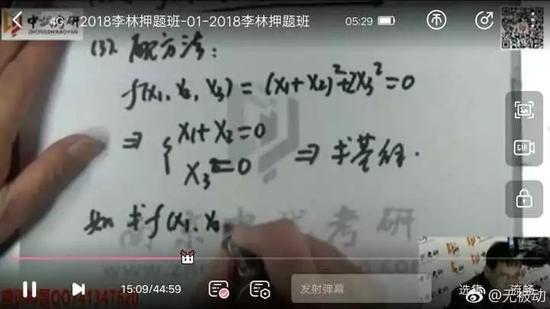 4G 2018李林押题班-01-2018李林押题班 05:29
(3) 配方法:
f(x₁, x₂, x₃) = (x₁+x₂)²+2x₃²=0
⇒ { x₁+x₂=0
x₃=0 ⇒ 求基础解.
如 求f(x₁, x₂
考研
15:09/44:59
发射弹幕
选集
流畅
@无被动